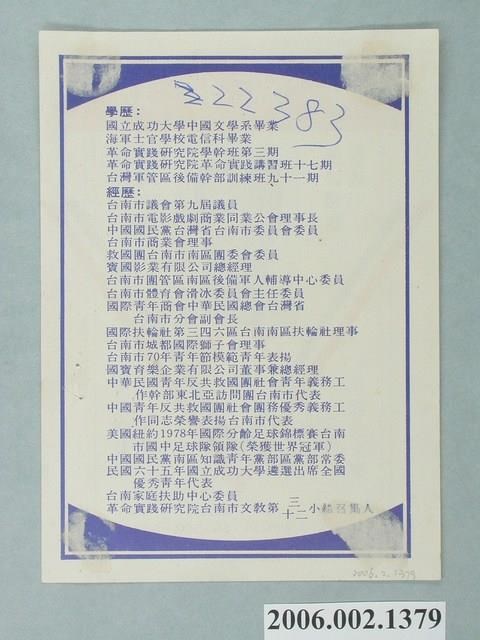 222383
學歷：
國立成功大學中國文學系畢業
海軍士官學校電信科畢業
革命實踐研究院學幹班第三期
革命實踐研究院革命實踐講習班十七期
台灣軍管區後備幹部訓練班九十一期
經歷：
台南市議會第九屆議員
台南市電影戲劇商業同業公會理事長
中國國民黨台灣省台南市委員會委員
台南市商業會理事
救國團台南市南區團委會委員
寶國影業有限公司總經理
台南市團管區南區後備軍人輔導中心委員
台南市體育會滑冰委員會主任委員
國際青年商會中華民國總會台灣省
台南市分會副會長
國際扶輪社第三四六區台南南區扶輪社理事
台南市城都國際獅子會理事
台南市70年青年節模範青年表揚
國寶育樂企業有限公司董事兼總經理
中華民國青年反共救國團社會青年義務工
作幹部東北亞訪問團台南市代表
中國青年反共救國團社會團務優秀義務工
作同志榮譽表揚台南市代表
美國紐約1978年國際分齡足球錦標賽台南
市國中足球隊領隊(榮獲世界冠軍)
中國國民黨南區知識青年黨部區黨部常委
民國六十五年國立成功大學遴選出席全國
優秀青年代表
台南家庭扶助中心委員
革命實踐研究院台南市文教第三十二小組召集人
2006.2.1379
2006.002.1379